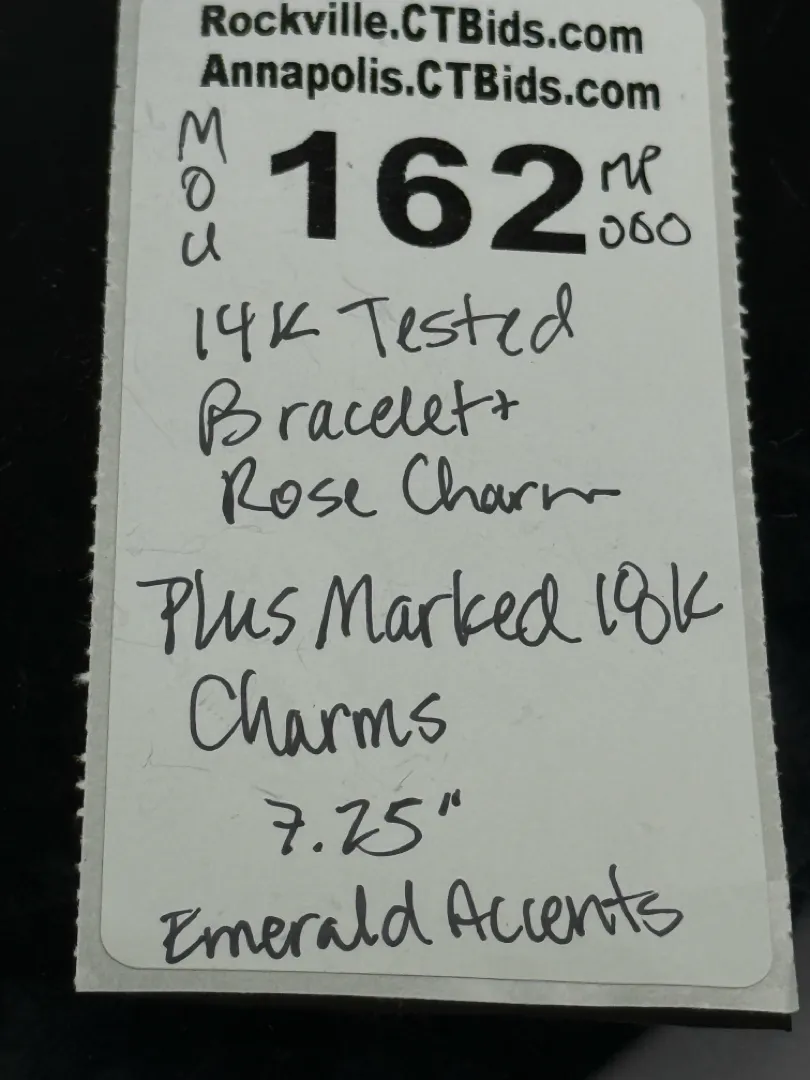 Rockville.CTBids.com
Annapolis.CTBids.com
MOU 162 MP
000
14K Tested
Bracelet +
Rose Charm
Plus Marked 18K
Charms
7.25"
Emerald Accents